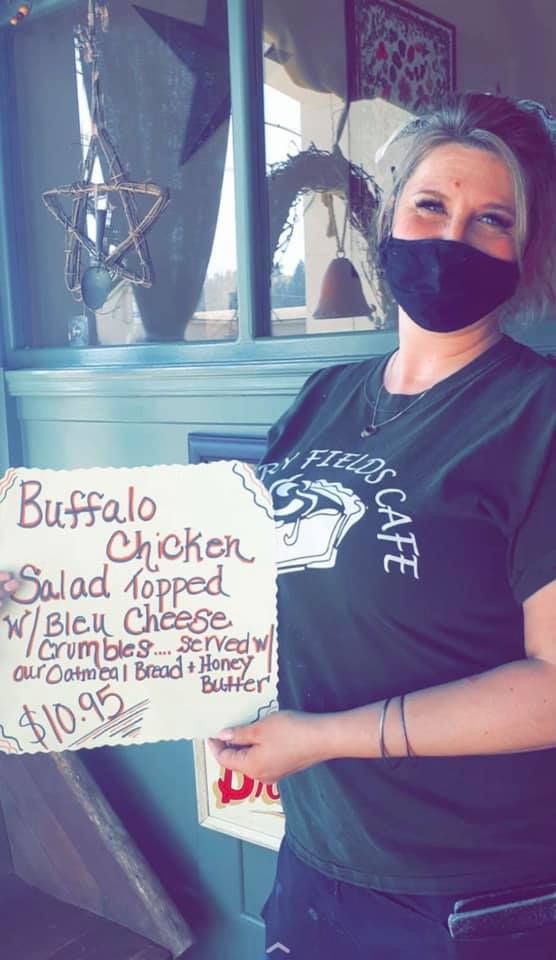 Buffalo
Chicken
Salad Topped
w/ Bleu Cheese
Crumbles.... served w/
our Oatmeal Bread + Honey
Butter
$10.95
RY FIELDS CAFE